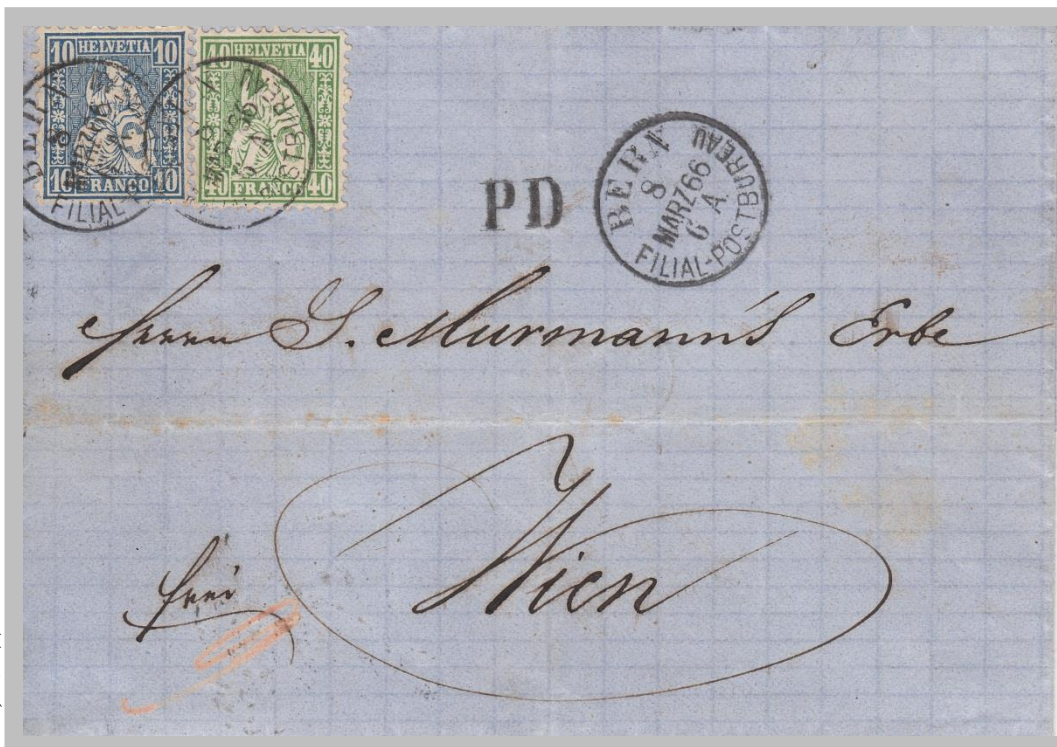 10 HELVETIA 10
10 FRANCO 10
40 HELVETIA 40
40 FRANCO 40
BERN
8
MÄRZ 66
FILIAL-POSTBUREAU
PD
BERN
8
MÄRZ 66
6 A
FILIAL-POSTBUREAU
Herrn S. Murmann's Erbe
Wien
frei